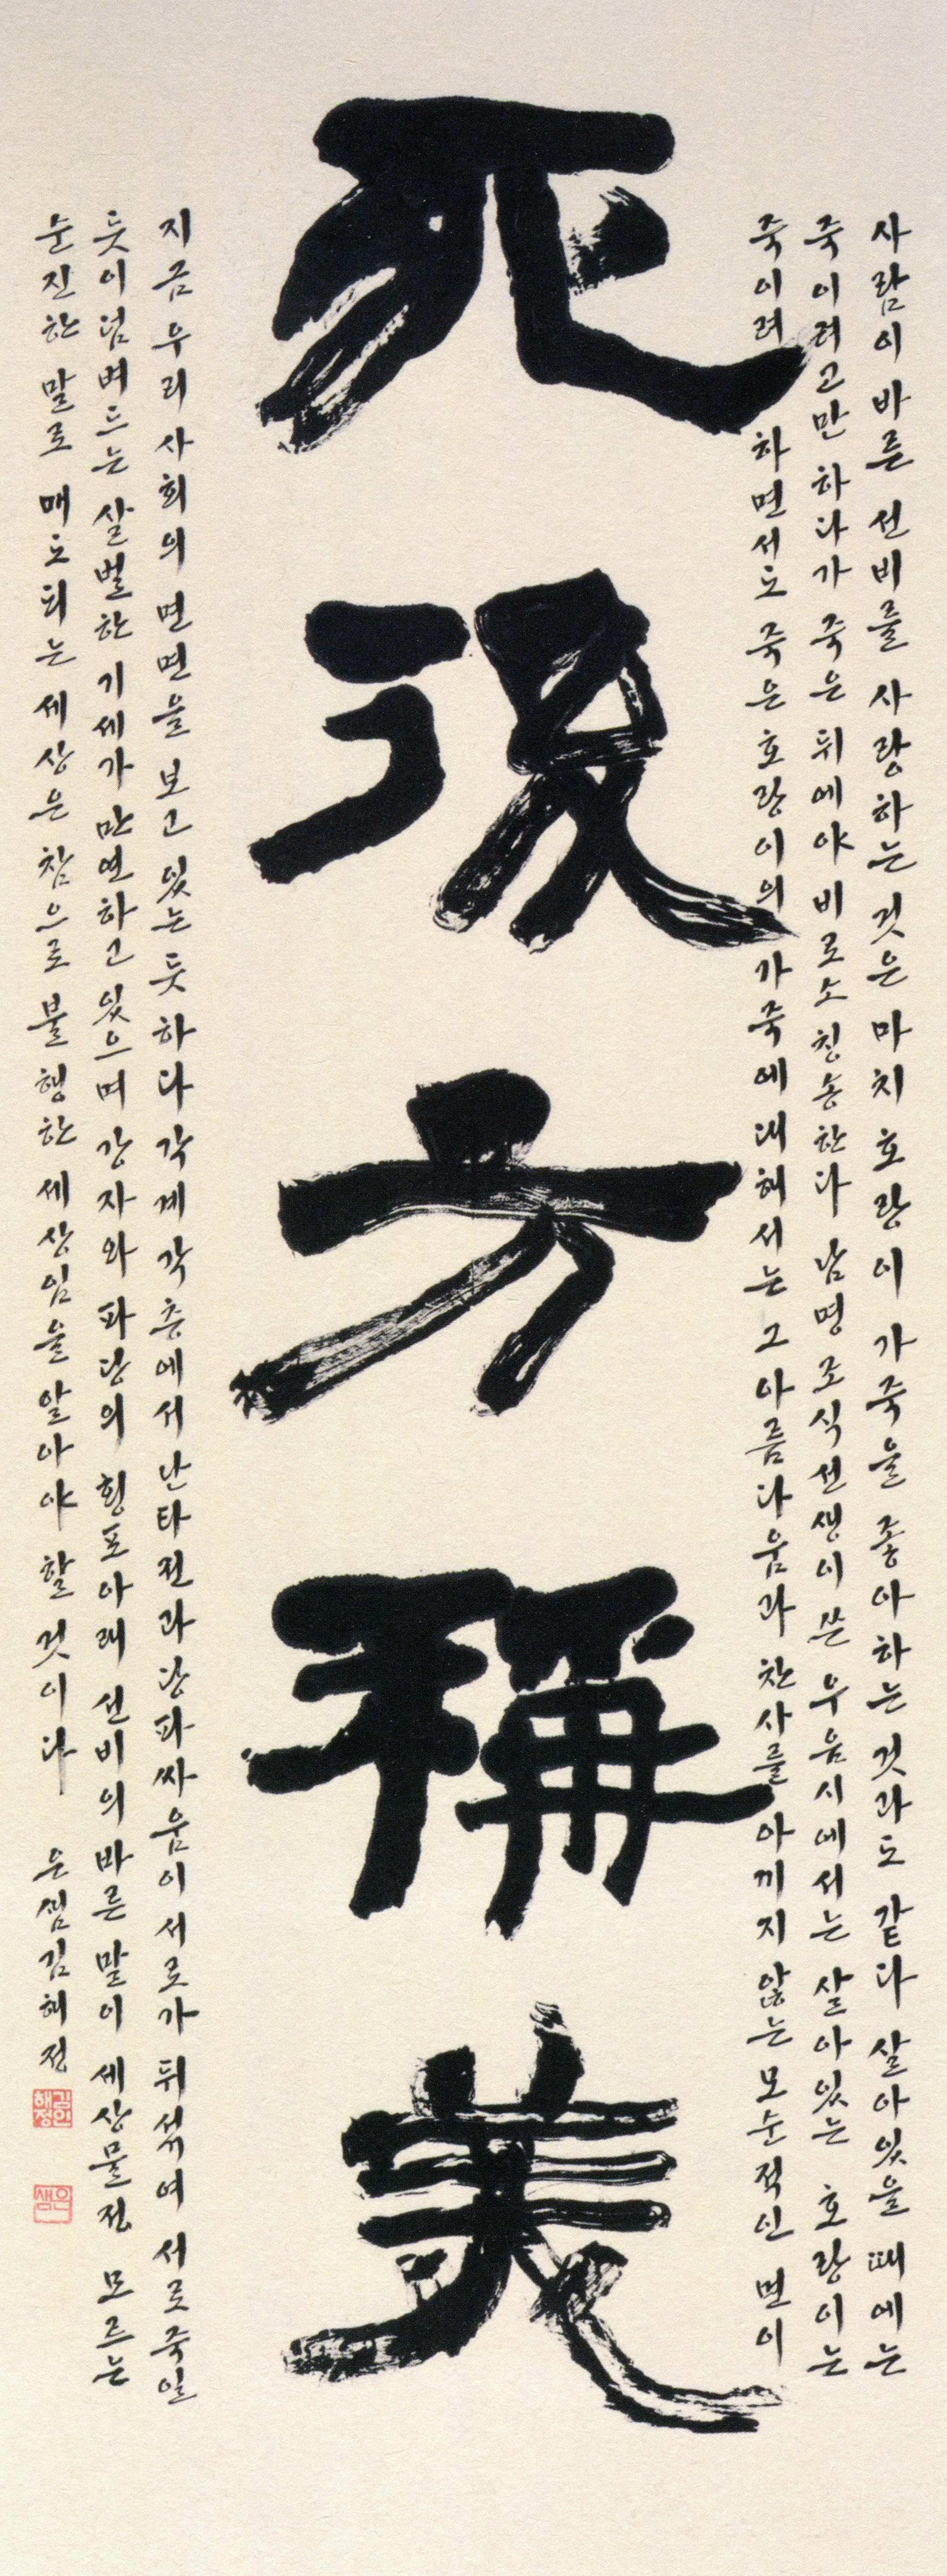 사람이 바른 선비를 사랑하는 것은 마치 호랑이 가죽을 좋아하는 것과도 같다 살아있을 때에는
죽이려고만 하다가 죽은 뒤에야 비로소 칭송한다 남명 조식선생이 쓴 우음시에서는 살아있는 호랑이는
죽이려 하면서도 죽은 호랑이의 가죽에 대해서는 그 아름다움과 찬사를 아끼지 않는 모순적인 면이
死後方稱美
지금 우리 사회의 면면을 보고 있는 듯 하다 각계각층에서 난타전과 당파싸움이 서로가 뒤섞여 서로 죽일
듯이 덤벼드는 살벌한 기세가 만연하고 있으며 강자와 파당의 횡포아래 선비의 바른 말이 세상물정 모르는
순진한 말로 매도되는 세상은 참으로 불행한 세상임을 알아야 할 것이다 은샘 김혜정
김인
혜정
은
샘